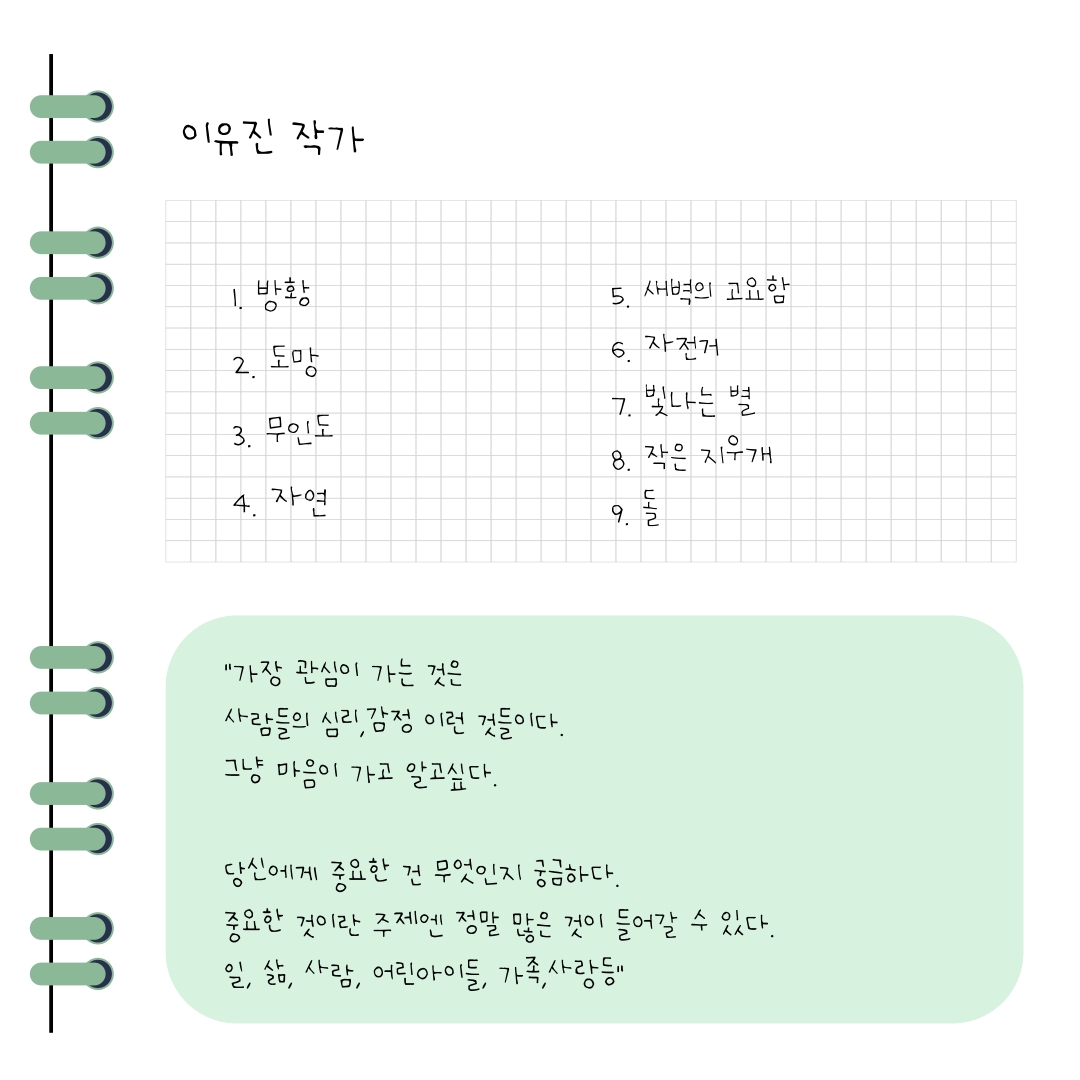 이유진 작가
1. 방황
2. 도망
3. 무인도
4. 자연
5. 새벽의 고요함
6. 자전거
7. 빛나는 별
8. 작은 지우개
9. 돌
"가장 관심이 가는 것은
사람들의 심리,감정 이런 것들이다.
그냥 마음이 가고 알고싶다.
당신에게 중요한 건 무엇인지 궁금하다.
중요한 것이란 주제엔 정말 많은 것이 들어갈 수 있다.
일, 삶, 사람, 어린아이들, 가족,사랑등"